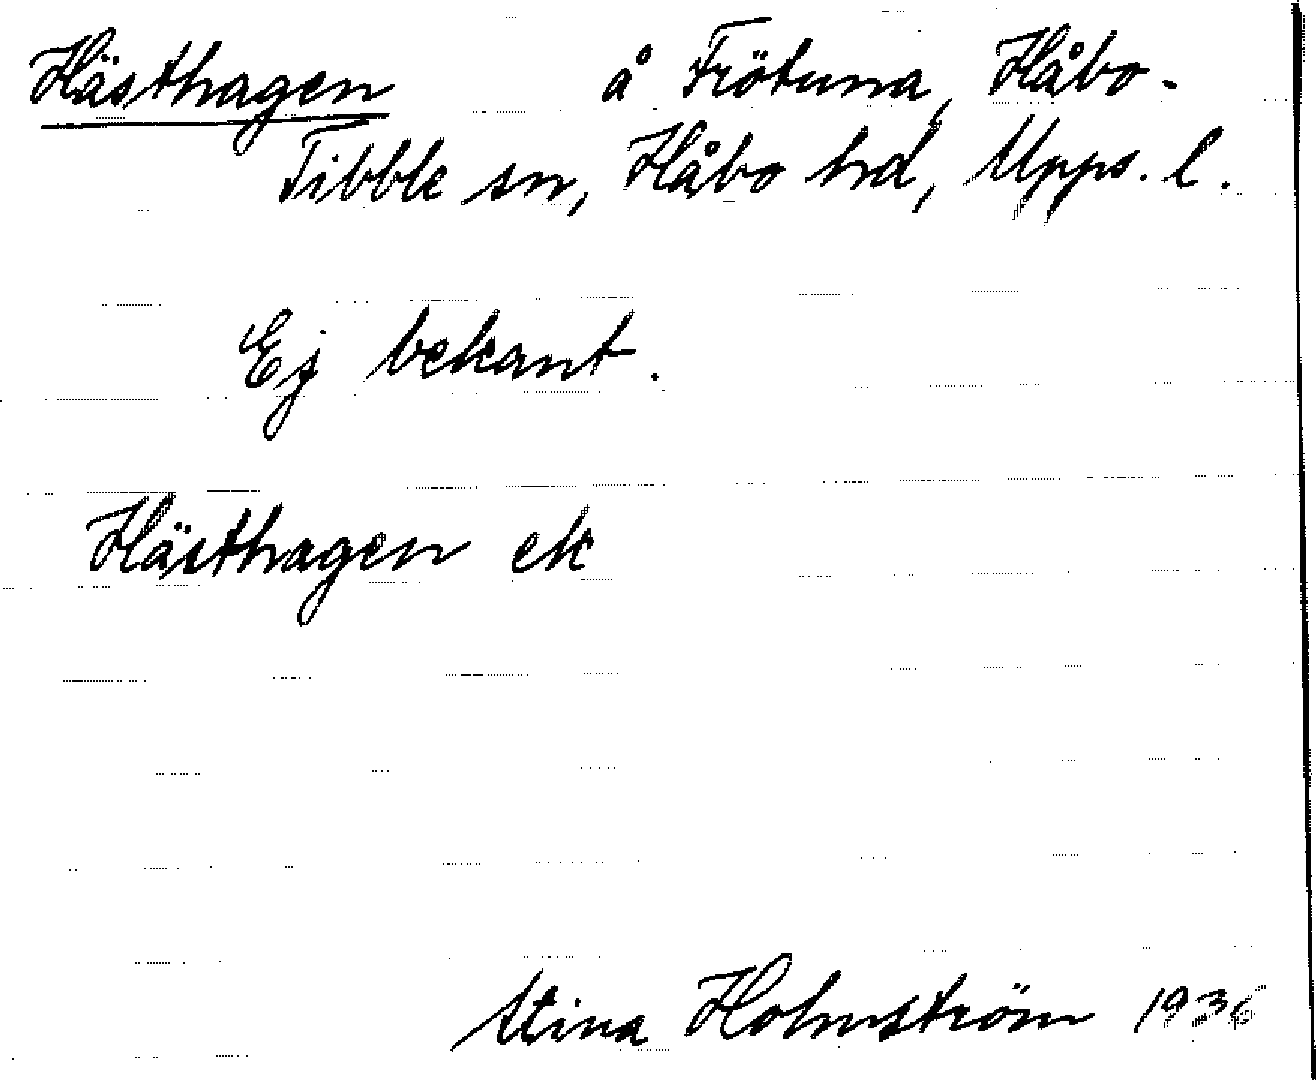 Hästhagen å Frötuna, Håbo-
Tibble sn, Håbo hrd, Upps. l.
Ej bekant.
Hästhagen ek
Stina Holmström 1936